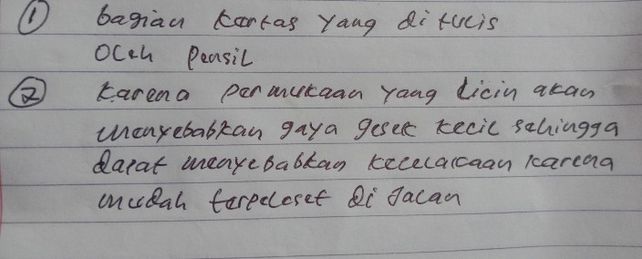 ① bagian kertas yang di tulis
oleh pensil
② karena permukaan yang licin akan
menyebabkan gaya gesek kecil sehingga
dapat menyebabkan kecelakaan karena
mudah terpeleset di jalan